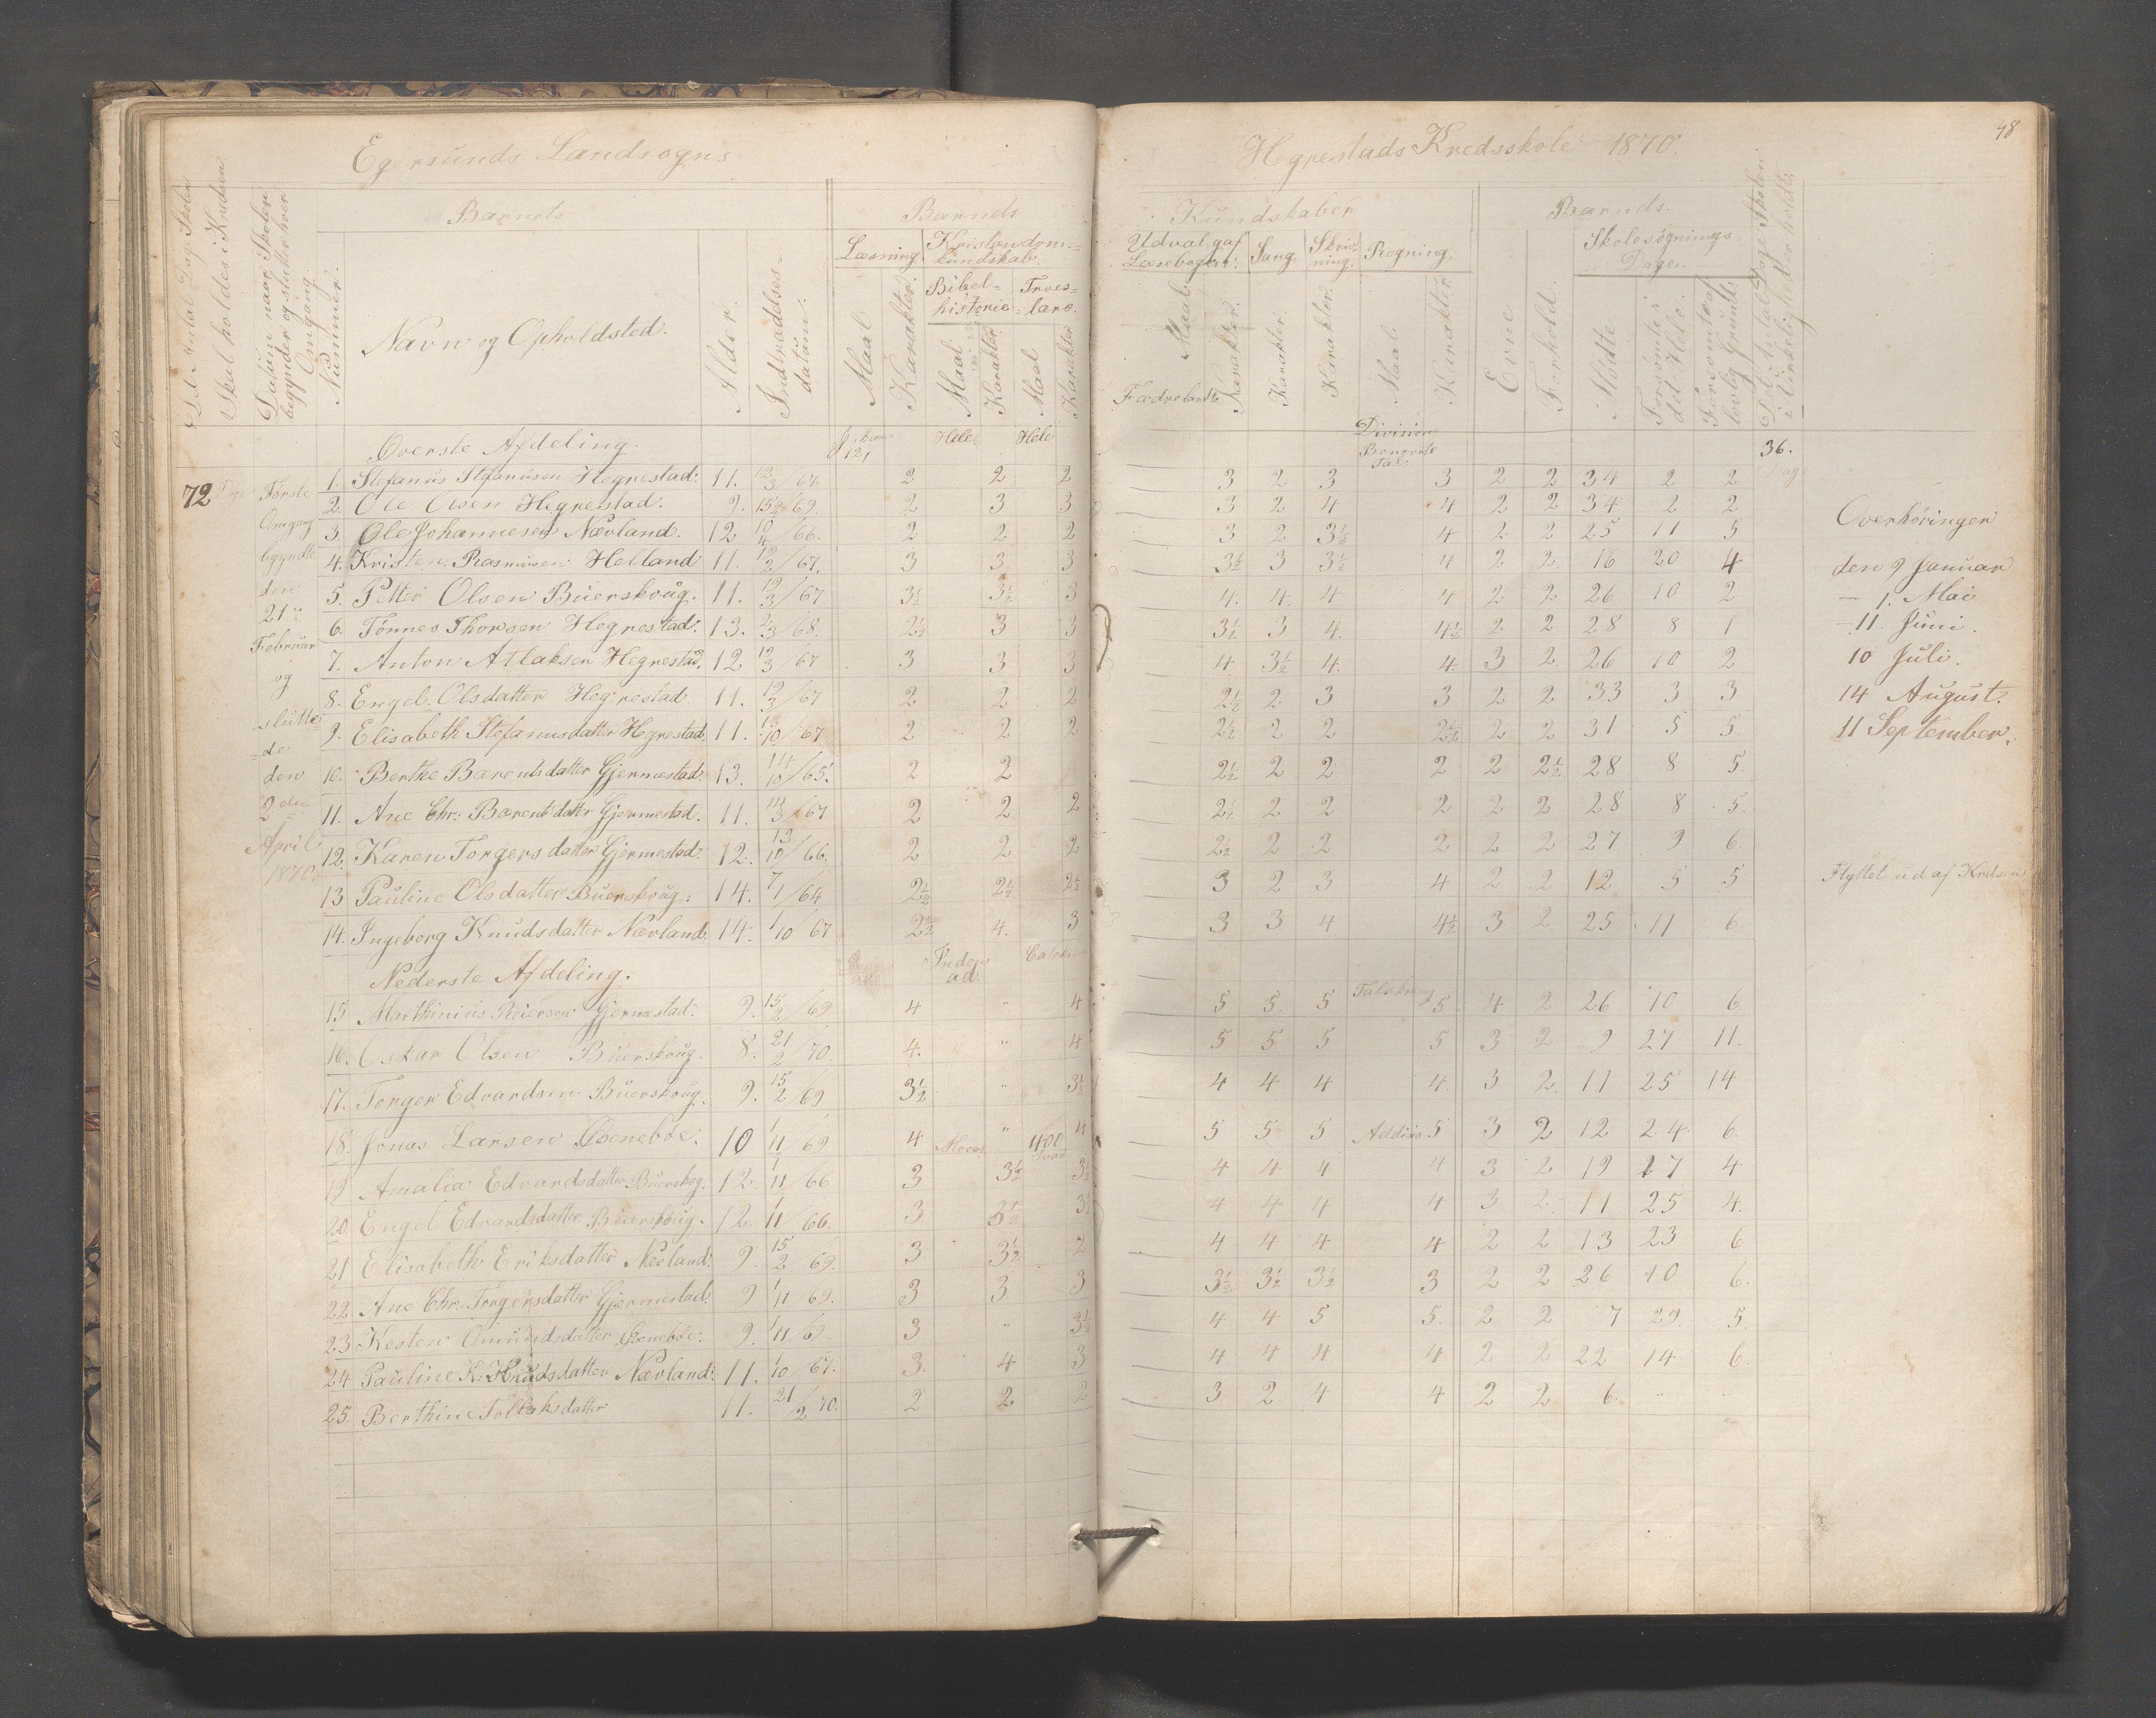 48
Egersunds Landsogns
Hegrestads Kredsskole 1870.
Det Antal Dage Skolen
Skal holdes i Kredsen
Datum naar Skolen
begynder og slutter hver
Omgang
Nummer.
Barnets
Navn og Opholdsted.
Alder.
Indtrædelses-
datum.
Barnets
Læsning.
Maal
Karakter.
Kristendoms-
kundskab.
Bibel-
historie
Troes-
lære.
Maal
Karakter
Maal
Karakter
Kundskaber
Udvalg af
Læsebogen.
Sang.
Skriv-
ning.
Regning.
Maal
Karakter.
Karakter
Karakter.
Maal
Karakter
Fædreland
Barnets.
Evne
Forhold.
Skolesøgnings-
Dage.
Mødte
Forsømte i
det Hele.
Forsømte af
lovlig Grund.
Det Antal Dage Skolen
i Virkelighed er holdt.
Øverste Afdeling.
121
Hele
Hele
Division
Benævnte
Tal.
36.
Dage
72 Dage
Første
Omgang
begyndte
den
21
Februar
og
slutte-
de
den
2den
April
1870.
1. Stefanus Stefanusen Hegrestad. 11. 12/3 /67 2 2 2 3 2 3 3 2 2 34 2 2
2. Ole Olsen Hegrestad. 9. 15/2 /69. 2 3 3 3 2 4 4 2 2 34 2 2
3. Ole Johannesen Nævland. 12 10/4 /66. 2 2 2 3 2 3½ 4 2 2 25 11 5
4. Kristen Rasmusen Helland 11. 12/2 /67. 3 3 3 3½ 3 3½ 4 2 2 16 20 4
5. Petter Olsen Buerskoug. 11. 12/3 /67 3½ 3½ 3 4. 4. 4 4 2 2 26 10 2
6. Tønnes Thorsen Hegrestad. 13. 2/3 /68. 2½ 3 3 3½ 3 4. 4½ 2 2 28 8 1
7. Anton Atlaksen Hegrestad. 12 12/3 /67 3 3 3 4. 3½ 4. 4. 3 2 26 10 2
8. Engel Olsdatter Hegrestad. 11. 12/3 /67 2 2 2 2½ 2 3 3 2 2 33 3 3
9. Elisabeth Stefanusdatter Hegrestad. 11. 13/10 /67 2 2 2 2½ 2 2 2½ 2 2 31 5 5
10. Berthe Barentsdatter Gjermestad. 13. 14/10 /65. 2 2 2½ 2 2 2 2 2½ 28 8 5.
11. Ane Chr. Barentsdatter Gjermestad. 11. 14/3 /67 2 2 2 2½ 2 2 2 2 2 28 8 5.
12. Karen Torgersdatter Gjermestad. 12. 13/10 /66. 2 2 2 2½ 2 2 2 2 2 27 9 6
13 Pauline Olsdatter Buerskoug. 14. 7/1 /64 2½ 2½ 2½ 3 2 3 4 2 2 12 5 5
14. Ingeborg Knudsdatter Nævland. 14. 1/10 67 2½ 4. 3 3 3 4 4½ 3 2 25 11 6
Overhøringer
den 9 Januar
— 1. Mai
— 11. Juni.
10 Juli.
14 August.
11 September.
Flyttet ud af Kredsen
Nederste Afdeling.
15 Marthinius Reiersen Gjermestad. 9. 15/2 /69 4 " 4 5 5. 5 5 4 2 26 10 6
16. Oskar Olsen Buerskoug. 8. 21/2 /70. 4. " 4 5 5 5 5 3 2 9 27 11.
17. Torger Edvardsen Buerskoug. 9. 15/2 69 3½ " 3½ 4 4 4 4. 3 2. 11 25 14
18. Jonas Larsen 10 1/11 69 4 " 4 5 5 5 5 3 2 12 24 6.
19 Amalia Edvardsdatter Buerskog. 12. 1/11 66 3 3½ 3½ 4 4 4 4 3 2 19 17 4
20. Engel Edvardsdatter Buerskoug. 12. 1/11 /66. 3 3½ 3½ 4 4 4 4 3 2. 11 25 4.
21 Elisabeth Eriksdatter Nævland. 9. 15/2 69. 3 3½ 2 4 4 4 4 2 2 13 23 6
22. Ane Chr. Torgersdatter Gjermestad. 9 1/11 69. 3 3 3 3½ 3½ 3½ 3 2 2 26 10 6.
23 Kesten Omundsdatter 9. 1/11 69 3 " 3½ 4 4 5 5. 2 2 7 29. 5.
24 Pauline K. Knudsdatter Nævland. 11. 1/10 67. 3. 4 3 4 4 4 4 2 2 22 14 6.
25. Berthine Tollaksdatter 11. 21/2 70. 2 2 2 3 2 4 4 2 2 6.